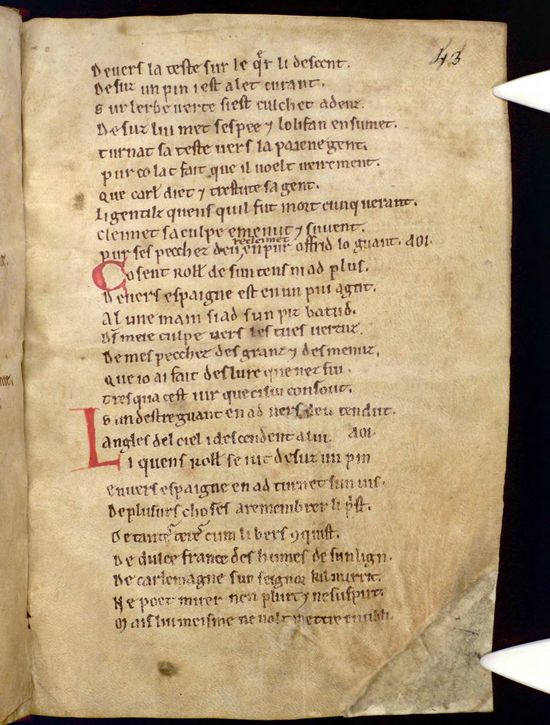 43
Deuers la teste sur le q̃r li descent.
Desuz un pin i est alet curant.
Sur lerbe uerte siest culchet adenz.
Desuz lui met sespee ⁊ lolifan ensumet.
turnat sa teste uers la paiene gent.
pur co lat fait que il uoelt ueirement.
Que carl diet ⁊ trestute sa gent.
li gentilz quens quil fut mort cunquerant.
cleimet sa culpe e menut ⁊ suuent.
recleimet
pur ses pecchez deu en puroffrid lo guant. AOI.
Co sent Roll̃ de sun tens ni ad plus.
Deuers espaigne est en un pui agut.
A lune main si ad sun piz batud.
Ds̃ meie culpe uers les tues uertuz.
De mes pecchez des granz ⁊ des menuz.
Que io ai fait des lure que nez fui.
tresqua cest iur que ci sui consout.
Sun destre guant en ad uers deu tendut.
Angles del ciel i descendent a lui. AOI.
Li quens Roll̃ se iut desuz un pin
enuers espaigne en ad turnet sun uis.
De plusurs choses a remembrer li p̃st.
De tantes teres cum li bers ꝯquist.
De dulce france des humes de sun lign.
De carlemagne sun seignor kil nurrit.
Ne poet muer nen plurt ⁊ ne suspirt.
Mais lui meisme ne uolt mettre en ubli.